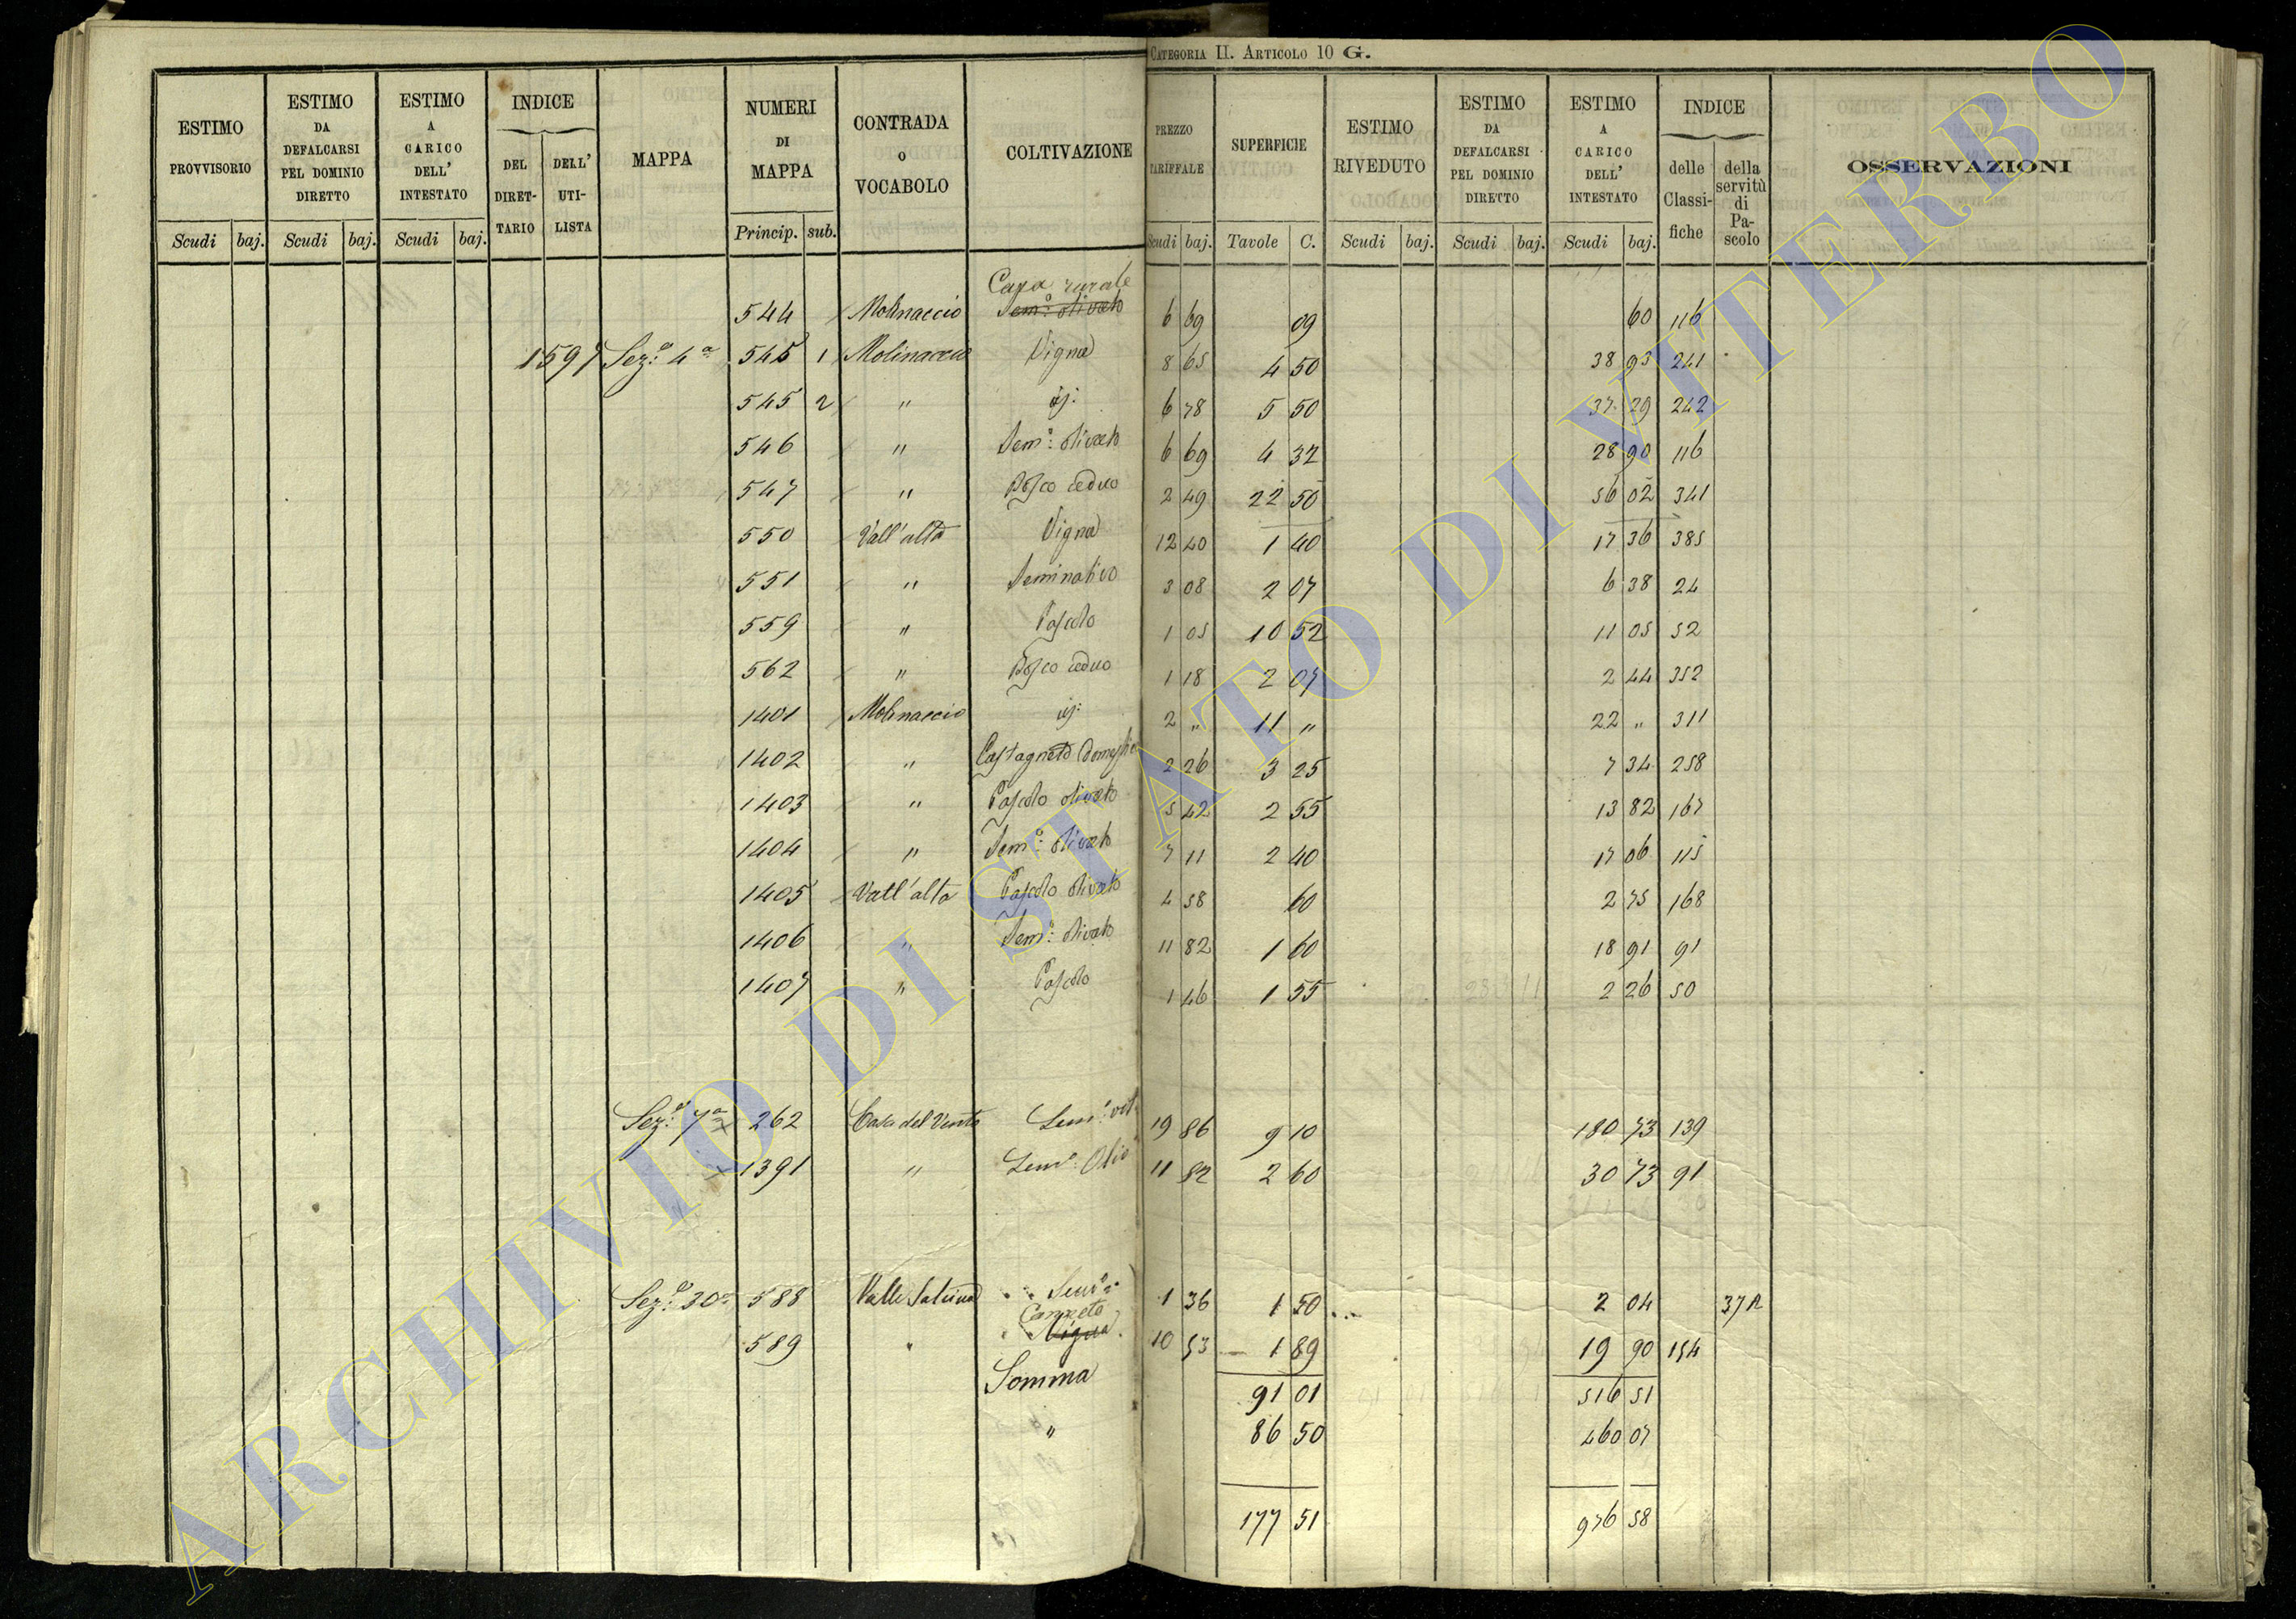 CATEGORIA II. ARTICOLO 10 G.
ESTIMO PROVVISORIO Scudi baj.
ESTIMO DA DEFALCARSI PEL DOMINIO DIRETTO Scudi baj.
ESTIMO A CARICO DELL' INTESTATO Scudi baj.
INDICE DEL DIRET-TARIO DELL' UTI-LISTA
MAPPA
NUMERI DI MAPPA Princip. sub.
CONTRADA O VOCABOLO
COLTIVAZIONE
PREZZO TARIFFALE Scudi baj.
SUPERFICIE Tavole C.
ESTIMO RIVEDUTO Scudi baj.
ESTIMO DA DEFALCARSI PEL DOMINIO DIRETTO Scudi baj.
ESTIMO A CARICO DELL' INTESTATO Scudi baj.
INDICE delle Classi-fiche della servitù di Pa-scolo
OSSERVAZIONI
Casa rurale
544 Molinaccio Sem.o olivato 6 69 09 60 116
1597 Sez.e 4a 545 1 Molinaccio Vigna 8 65 4 50 38 93 241
545 2 " id: 6 78 5 50 37 29 242
546 " Sem.o olivato 6 69 4 32 28 90 116
547 " Bosco ceduo 2 49 22 50 56 02 341
550 Vall'alta Vigna 12 40 1 40 17 36 385
551 " Seminativo 3 08 2 07 6 38 24
559 " Pascolo 1 05 10 52 11 05 52
562 " Bosco ceduo 1 18 2 07 2 44 352
1401 Molinaccio id: 2 " 11 " 22 " 311
1402 " Castagneto domestic 2 26 3 25 7 34 258
1403 " Pascolo olivato 5 42 2 55 13 82 167
1404 " Sem.o olivato 7 11 2 40 17 06 115
1405 Vall'alta Pascolo olivato 4 58 60 2 75 168
1406 " Sem.o olivato 11 82 1 60 18 91 91
1407 " Pascolo 1 46 1 55 2 26 50
Sez.e 7a 262 Casa del Vento Sem.o vit 19 86 9 10 180 73 139
1391 " Sem.o Oliv 11 82 2 60 30 73 91
Sez.e 30a 588 Valle Sem.o 1 36 1 50 2 04 37 A
Canneto
589 " Vigna 10 53 1 89 19 90 154
Somma 91 01 516 51
" 86 50 460 07
177 51 976 58
ARCHIVIO DI STATO DI VITERBO